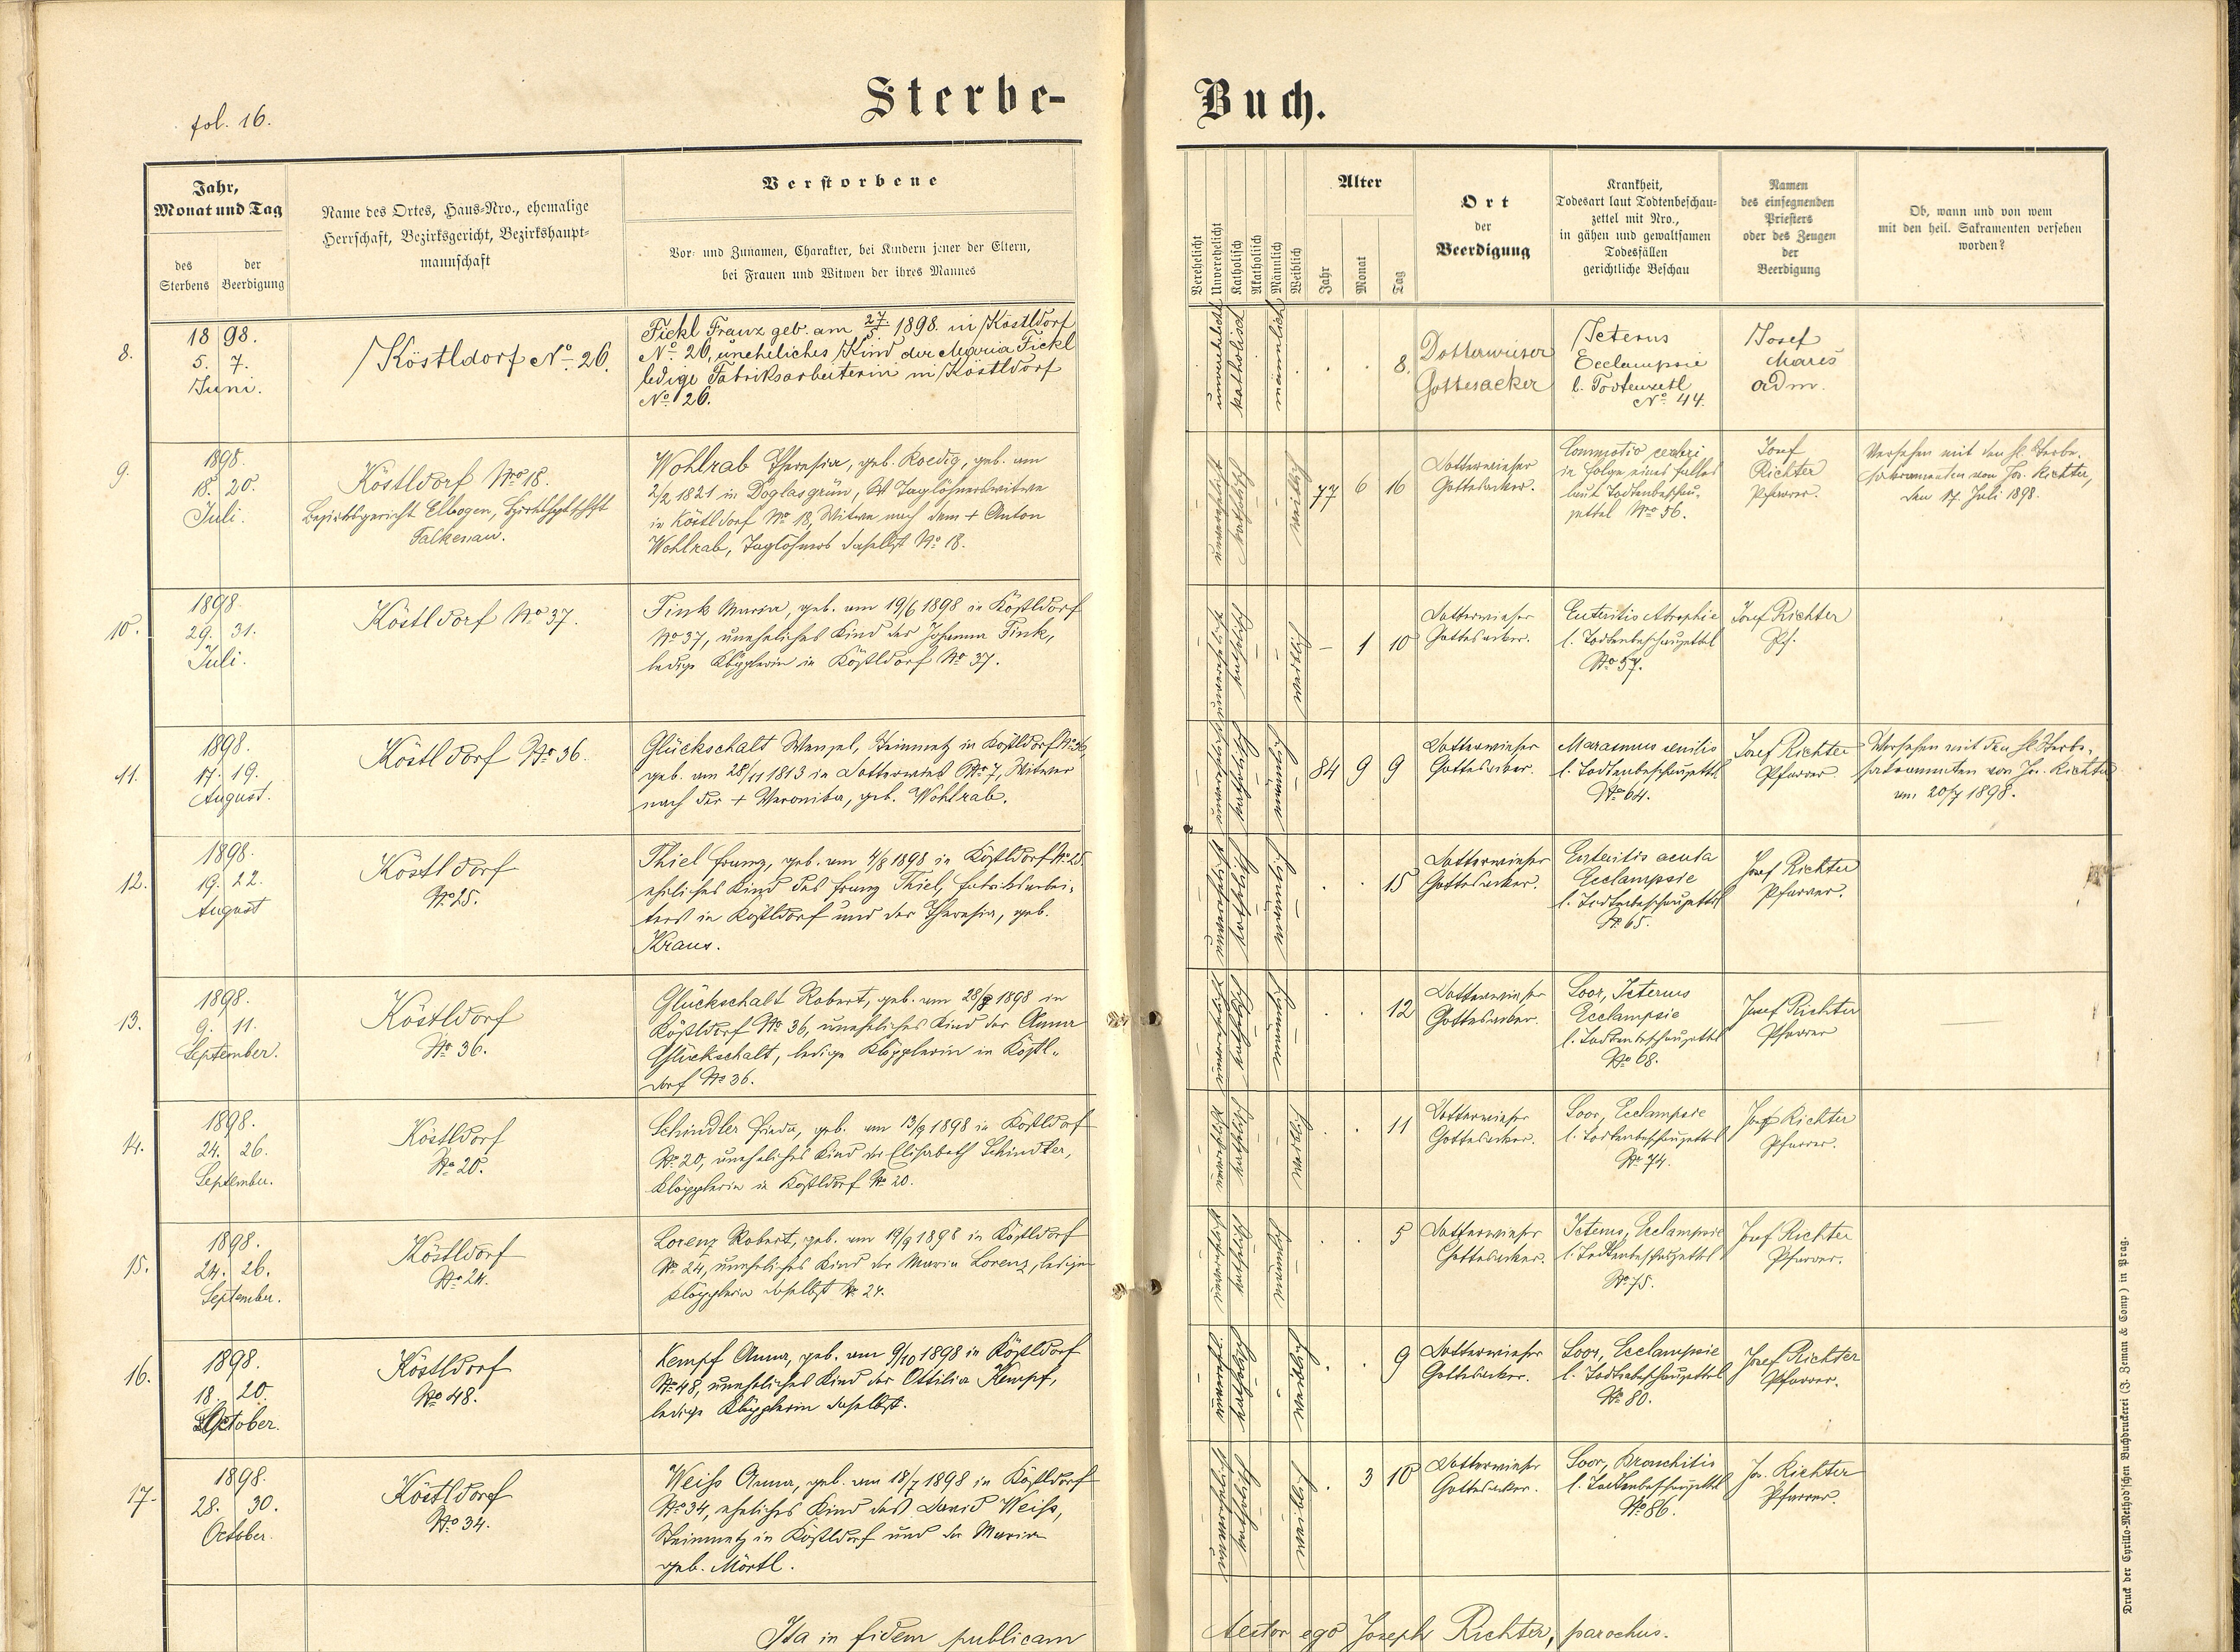 fol. 16.
Sterbe-Buch.
Jahr,
Monat und Tag
des Sterbens
der Beerdigung
Name des Ortes, Haus-Nro., ehemalige
Herrschaft, Bezirksgericht, Bezirkshaupt-
mannschaft
Verstorbene
Vor- und Zunamen, Charakter, bei Kindern jener der Eltern,
bei Frauen und Witwen der ihres Mannes
Verehelicht
Unverehelicht
Katholisch
Akatholisch
Männlich
Weiblich
Alter
Jahr
Monat
Tag
Ort
der
Beerdigung
Krankheit,
Todesart laut Todtenbeschau-
zettel mit Nro.,
in gähen und gewaltsamen
Todesfällen
gerichtliche Beschau
Namen
des einsegnenden
Priesters
oder des Zeugen
der
Beerdigung
Ob, wann und von wem
mit den heil. Sakramenten versehen
worden?
8.
1898.
5. 7.
Juni.
Köstldorf No. 26.
Fickl Franz geb. am 27/5 1898. in Köstldorf
No. 26, uneheliches Kind der Maria Fickl
ledige Fabriksarbeiterin in Köstldorf
No. 26.
unverehelicht
katholisch
männlich
. . 8.
Dotterwieser
Gottesacker
Icterus
Ecclampsie
l. Todtenzettl
No. 44.
Josef
Mareš
adm.
9.
1898.
18. 20.
Juli.
Köstldorf Nro 18.
Bezirksgericht Elbogen,
Falkenau.
Wohlrab Theresia, geb. Roedig, geb. am
2/2 1821 in Doglasgrün, Taglöhnerswitwe
in Köstldorf No 18, Witwe nach dem + Anton
Wohlrab, Taglöhners daselbst No 18.
unverehelicht
katholisch
weiblich
77 6 16
Dotterwieser
Gottesacker.
Commotio cerebri
in Folge eines Falles
laut Todtenbeschau-
zettel Nro 56.
Josef
Richter
Pfarrer.
Versehen mit den hl. Sterbe-
sakramenten von Jos. Richter,
den 17. Juli 1898.
10.
1898.
29. 31.
Juli.
Köstldorf No 37.
Fink Maria, geb. am 19/6 1898 in Köstldorf
No 37, uneheliches Kind der Johanna Fink,
ledige Klöpplerin in Köstldorf No 37.
unverehelicht
katholisch
weiblich
– 1 10
Dotterwieser
Gottesacker.
Enteritis Atrophie
l. Todtenbeschauzettel
No 57.
Josef Richter
Pf.
11.
1898.
17. 19.
August.
Köstldorf No 36.
Glückschalt Wenzel, Steinmetz in Köstldorf No 36,
geb. am 28/11 1813 in Dotterwies No 7, Witwer
nach der + Veronika, geb. Wohlrab.
unverehelicht
katholisch
männlich
84 9 9
Dotterwieser
Gottesacker.
Marasmus senilis
l. Todtenbeschauzettl
No 64.
Josef Richter
Pfarrer.
Versehen mit den hl. Sterbe-
sakramenten von Jos. Richter
am 20/7 1898.
12.
1898.
19. 22.
August
Köstldorf
No 25.
Thiel Franz, geb. am 4/8 1898 in Köstldorf No 25.
eheliches Kind des Franz Thiel, Fabriksarbei-
ters in Köstldorf und der Theresia, geb.
Kraus.
unverehelicht
katholisch
männlich
. . 15
Dotterwieser
Gottesacker.
Enteritis acuta
Ecclampsie
l. Todtenbeschauzettl
No 65.
Josef Richter
Pfarrer.
13.
1898.
9. 11.
September.
Köstldorf
No 36.
Glückschalt Robert, geb. am 28/8 1898 in
Köstldorf No 36, uneheliches Kind der Anna
Glückschalt, ledige Klöpplerin in Köstl-
dorf No 36.
unverehelicht
katholisch
männlich
. . 12
Dotterwieser
Gottesacker.
Soor, Icterus
Ecclampsie
l. Todtenbeschauzettel
No 68.
Josef Richter
Pfarrer
14.
1898.
24. 26.
September.
Köstldorf
No 20.
Schindler Frieda, geb. am 13/9 1898 in Köstldorf
No 20, uneheliches Kind der Elisabeth Schindler,
Klöpplerin in Köstldorf No 20.
unverehelicht
katholisch
weiblich
. . 11
Dotterwieser
Gottesacker.
Soor, Ecclampsie
l. Todtenbeschauzettel
No 74.
Josef Richter
Pfarrer.
15.
1898.
24. 26.
September.
Köstldorf
No 24.
Lorenz Robert, geb. am 19/9 1898 in Köstldorf
No 24, uneheliches Kind der Maria Lorenz, ledige
Klöpplerin daselbst No 24.
unverehelicht
katholisch
männlich
. . 5
Dotterwieser
Gottesacker.
Icterus, Ecclampsie
l. Todtenbeschauzettel
No 75.
Josef Richter
Pfarrer.
16.
1898.
18. 20.
October.
Köstldorf
No 48.
Kempf Anna, geb. am 9/10 1898 in Köstldorf
No 48, uneheliches Kind der Ottilia Kempf,
ledige Klöpplerin daselbst.
unverehl.
katholisch
weiblich
. . 9
Dotterwieser
Gottesacker.
Soor, Ecclampsie
l. Todtenbeschauzettel
No 80.
Josef Richter
Pfarrer.
17.
1898.
28. 30.
October.
Köstldorf
No 34.
Weiss Anna, geb. am 18/7 1898 in Köstldorf
No 34, eheliches Kind des David Weiss,
Steinmetz in Köstldorf und der Maria
geb. Mörtl.
unverehelicht
katholisch
weiblich
. 3 10
Dotterwieser
Gottesacker.
Soor, Bronchitis
l. Todtenbeschauzettel
No 86.
Jos. Richter
Pfarrer.
Ita in fidem publicam testor ego Joseph Richter, parochus.
Druck der Cyrillo-Method'schen Buchdruckerei (J. Zeman & Comp) in Prag.